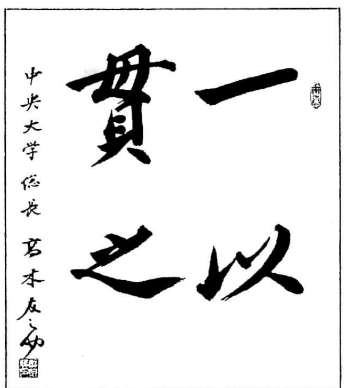 一以
貫之
中央大学 総長 高木友之助